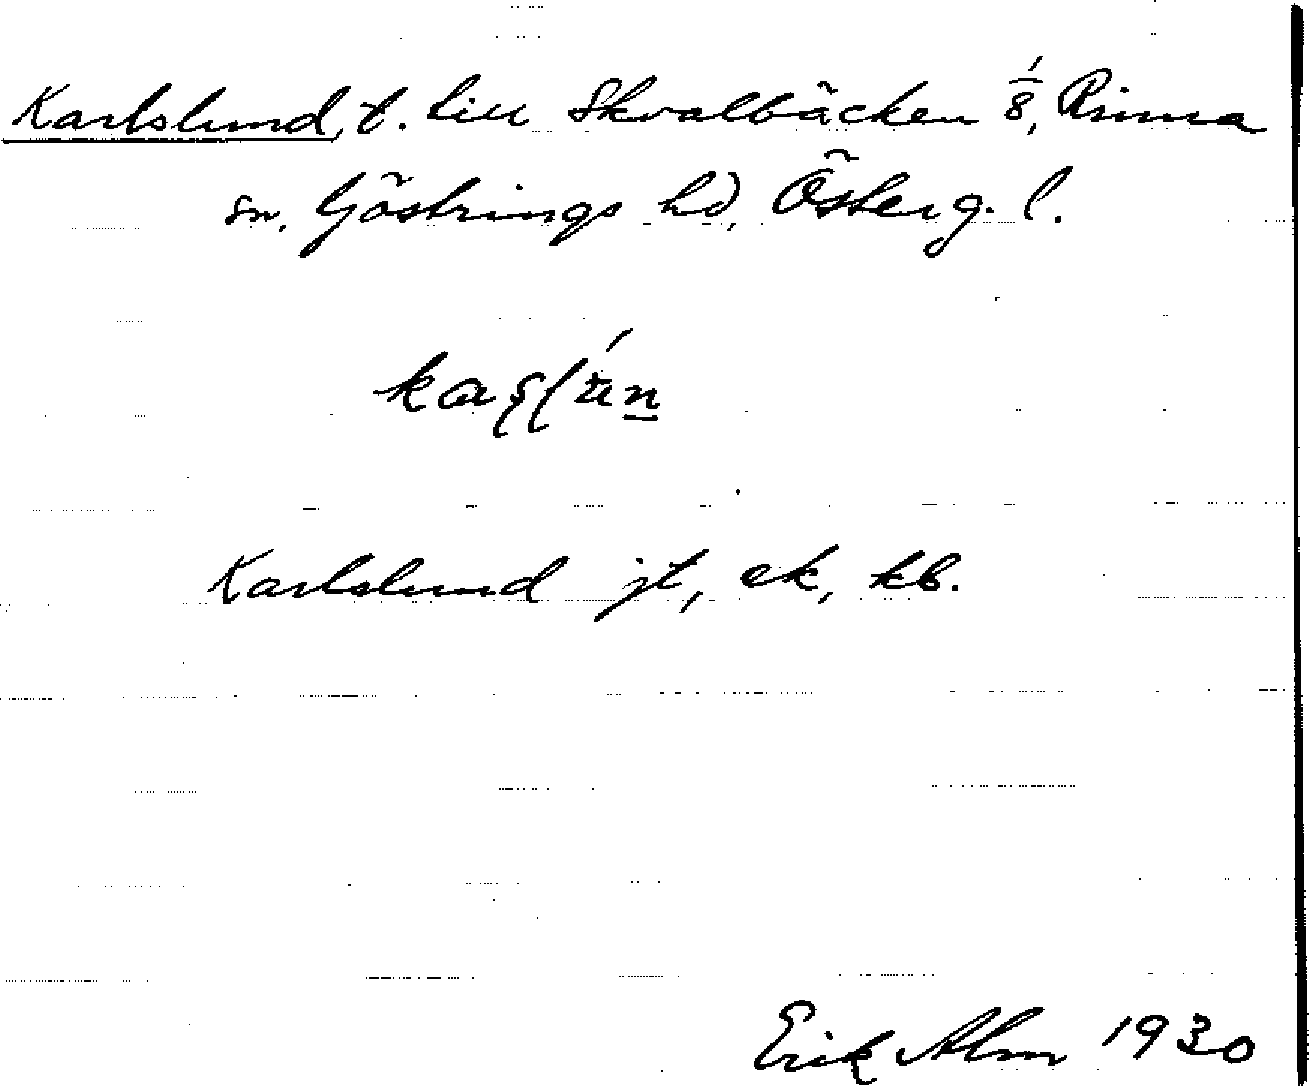 Karlslund, t. till Skvalbäcken 1/8, Rinna
sn, Göstrings hd, Österg. l.
Karlslund jt, ek, kb.
Erik Alm 1930